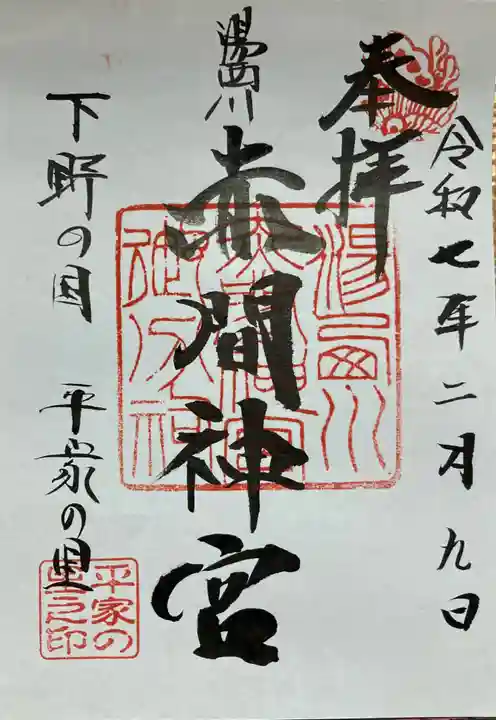 令和七年二月九日
奉拝
湯西川
赤間神宮
下野の国 平家の里
湯西川
赤間神宮
平家の
里之印